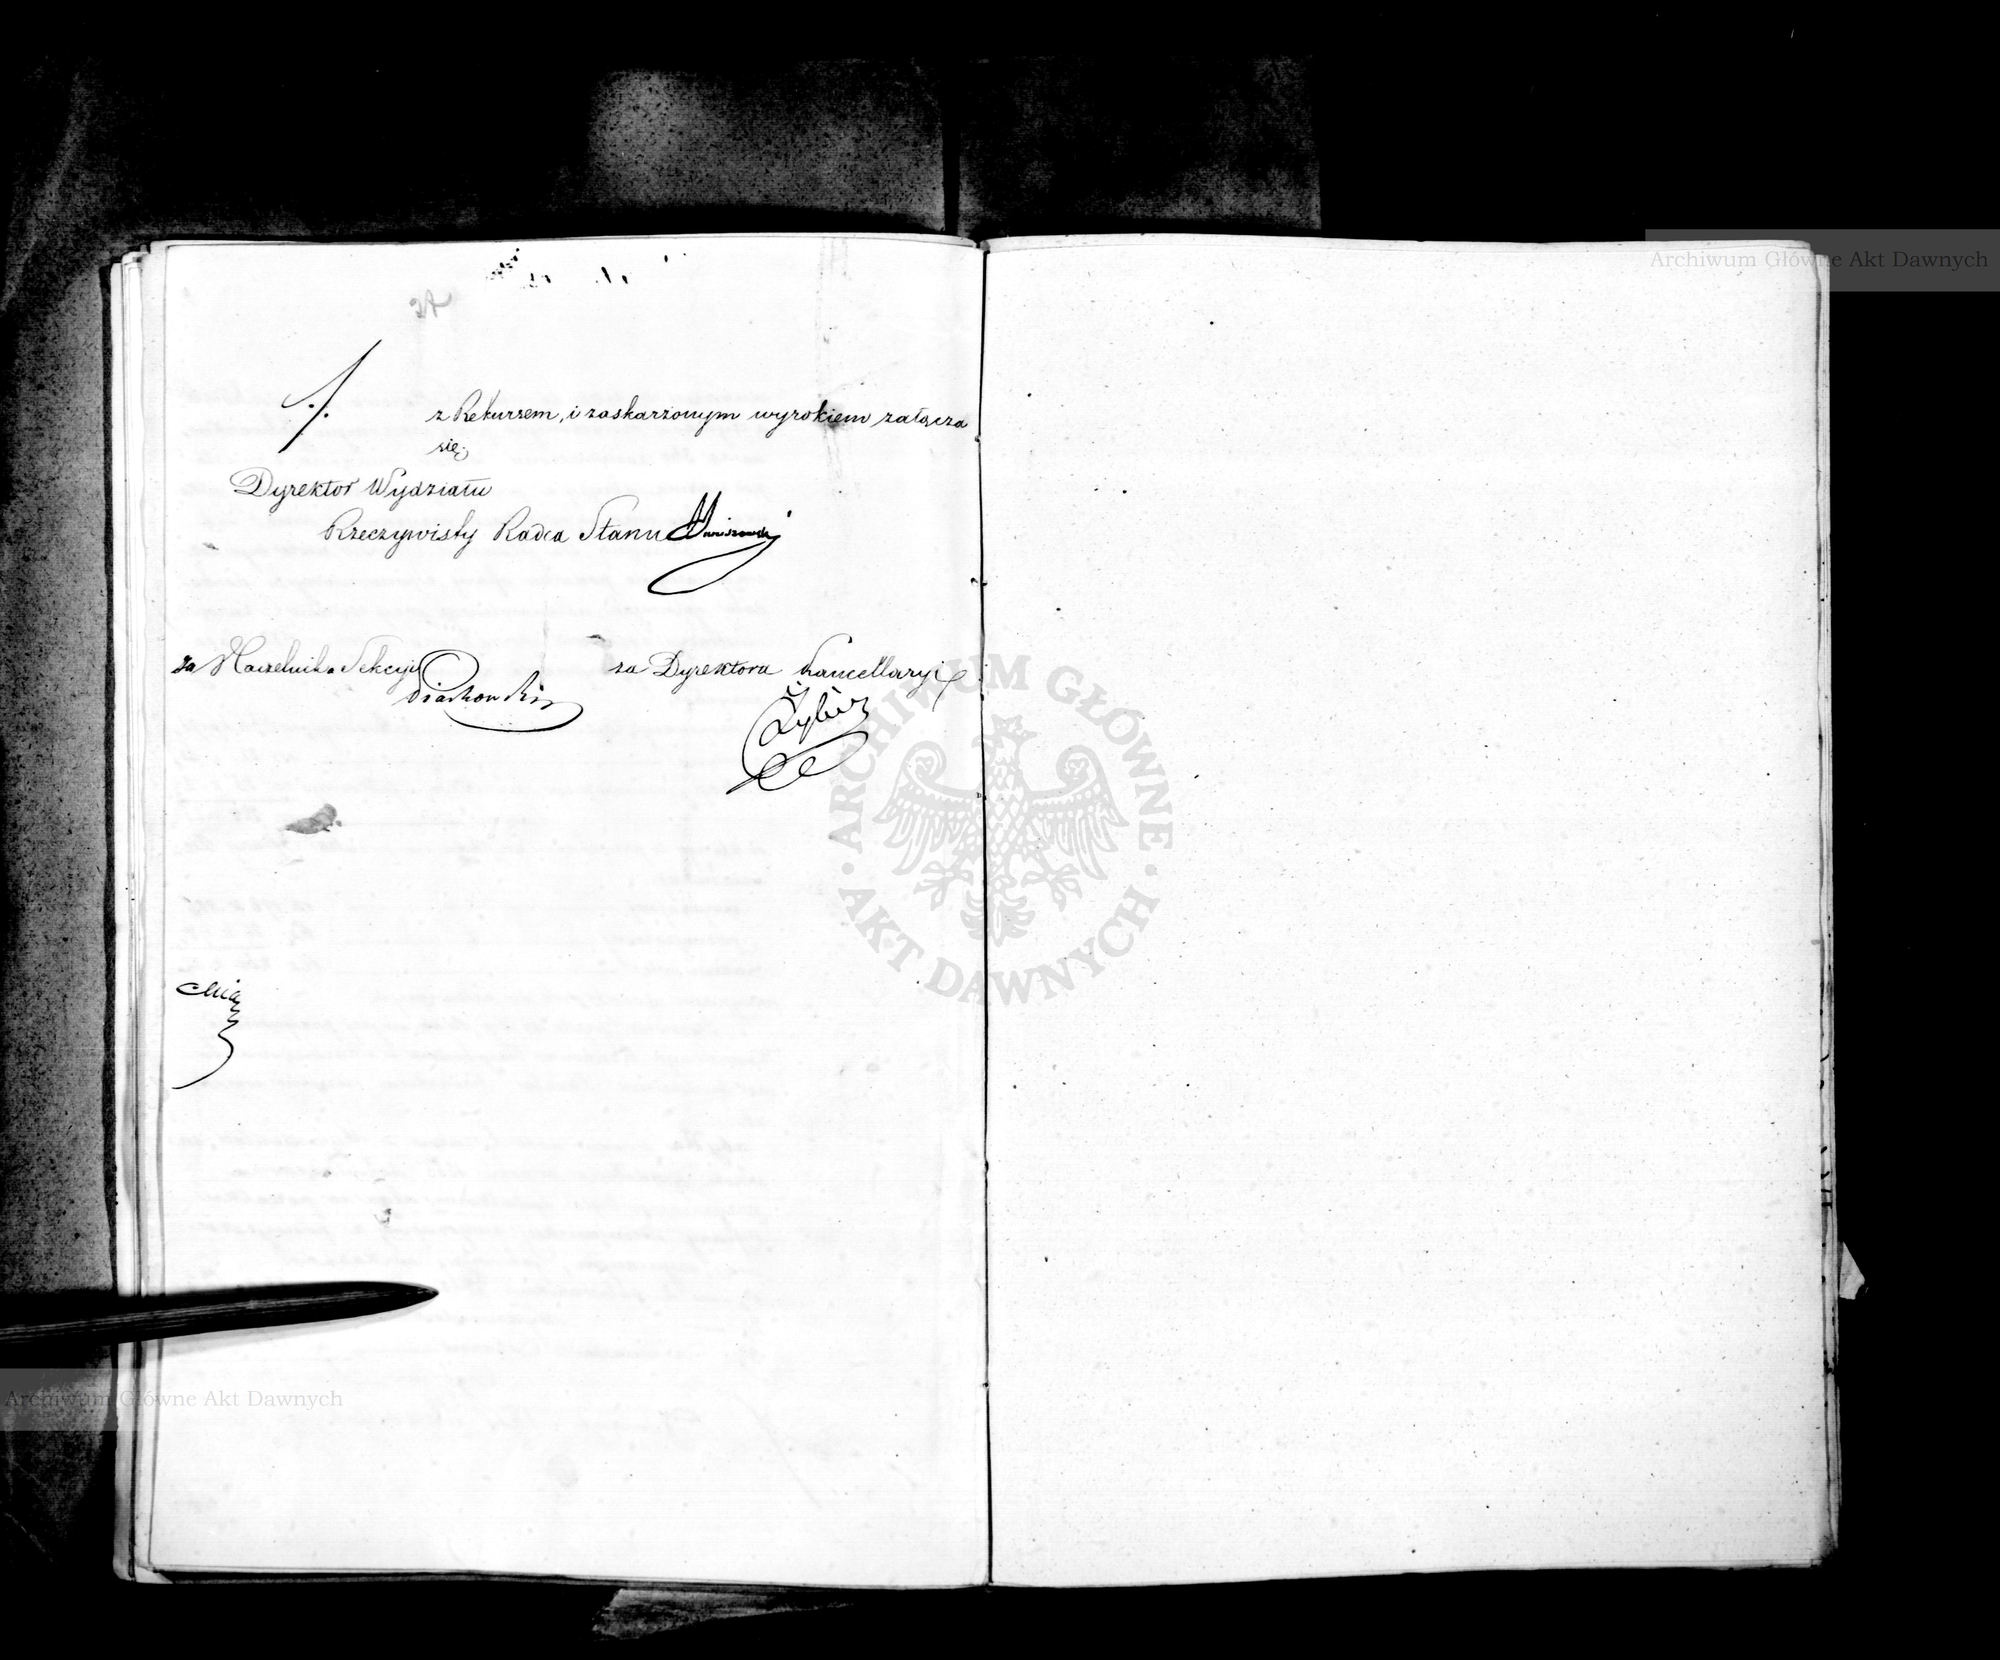 Archiwum Główne Akt Dawnych
./.
z Rekursem, i zaskarżonym wyrokiem załącza
się.
Dyrektor Wydziału
Rzeczywisty Radca Stanu
za Naczelnika Sekcyi
za Dyrektora Kancellaryi
ARCHIWUM GŁÓWNE
AKT DAWNYCH
Archiwum Główne Akt Dawnych